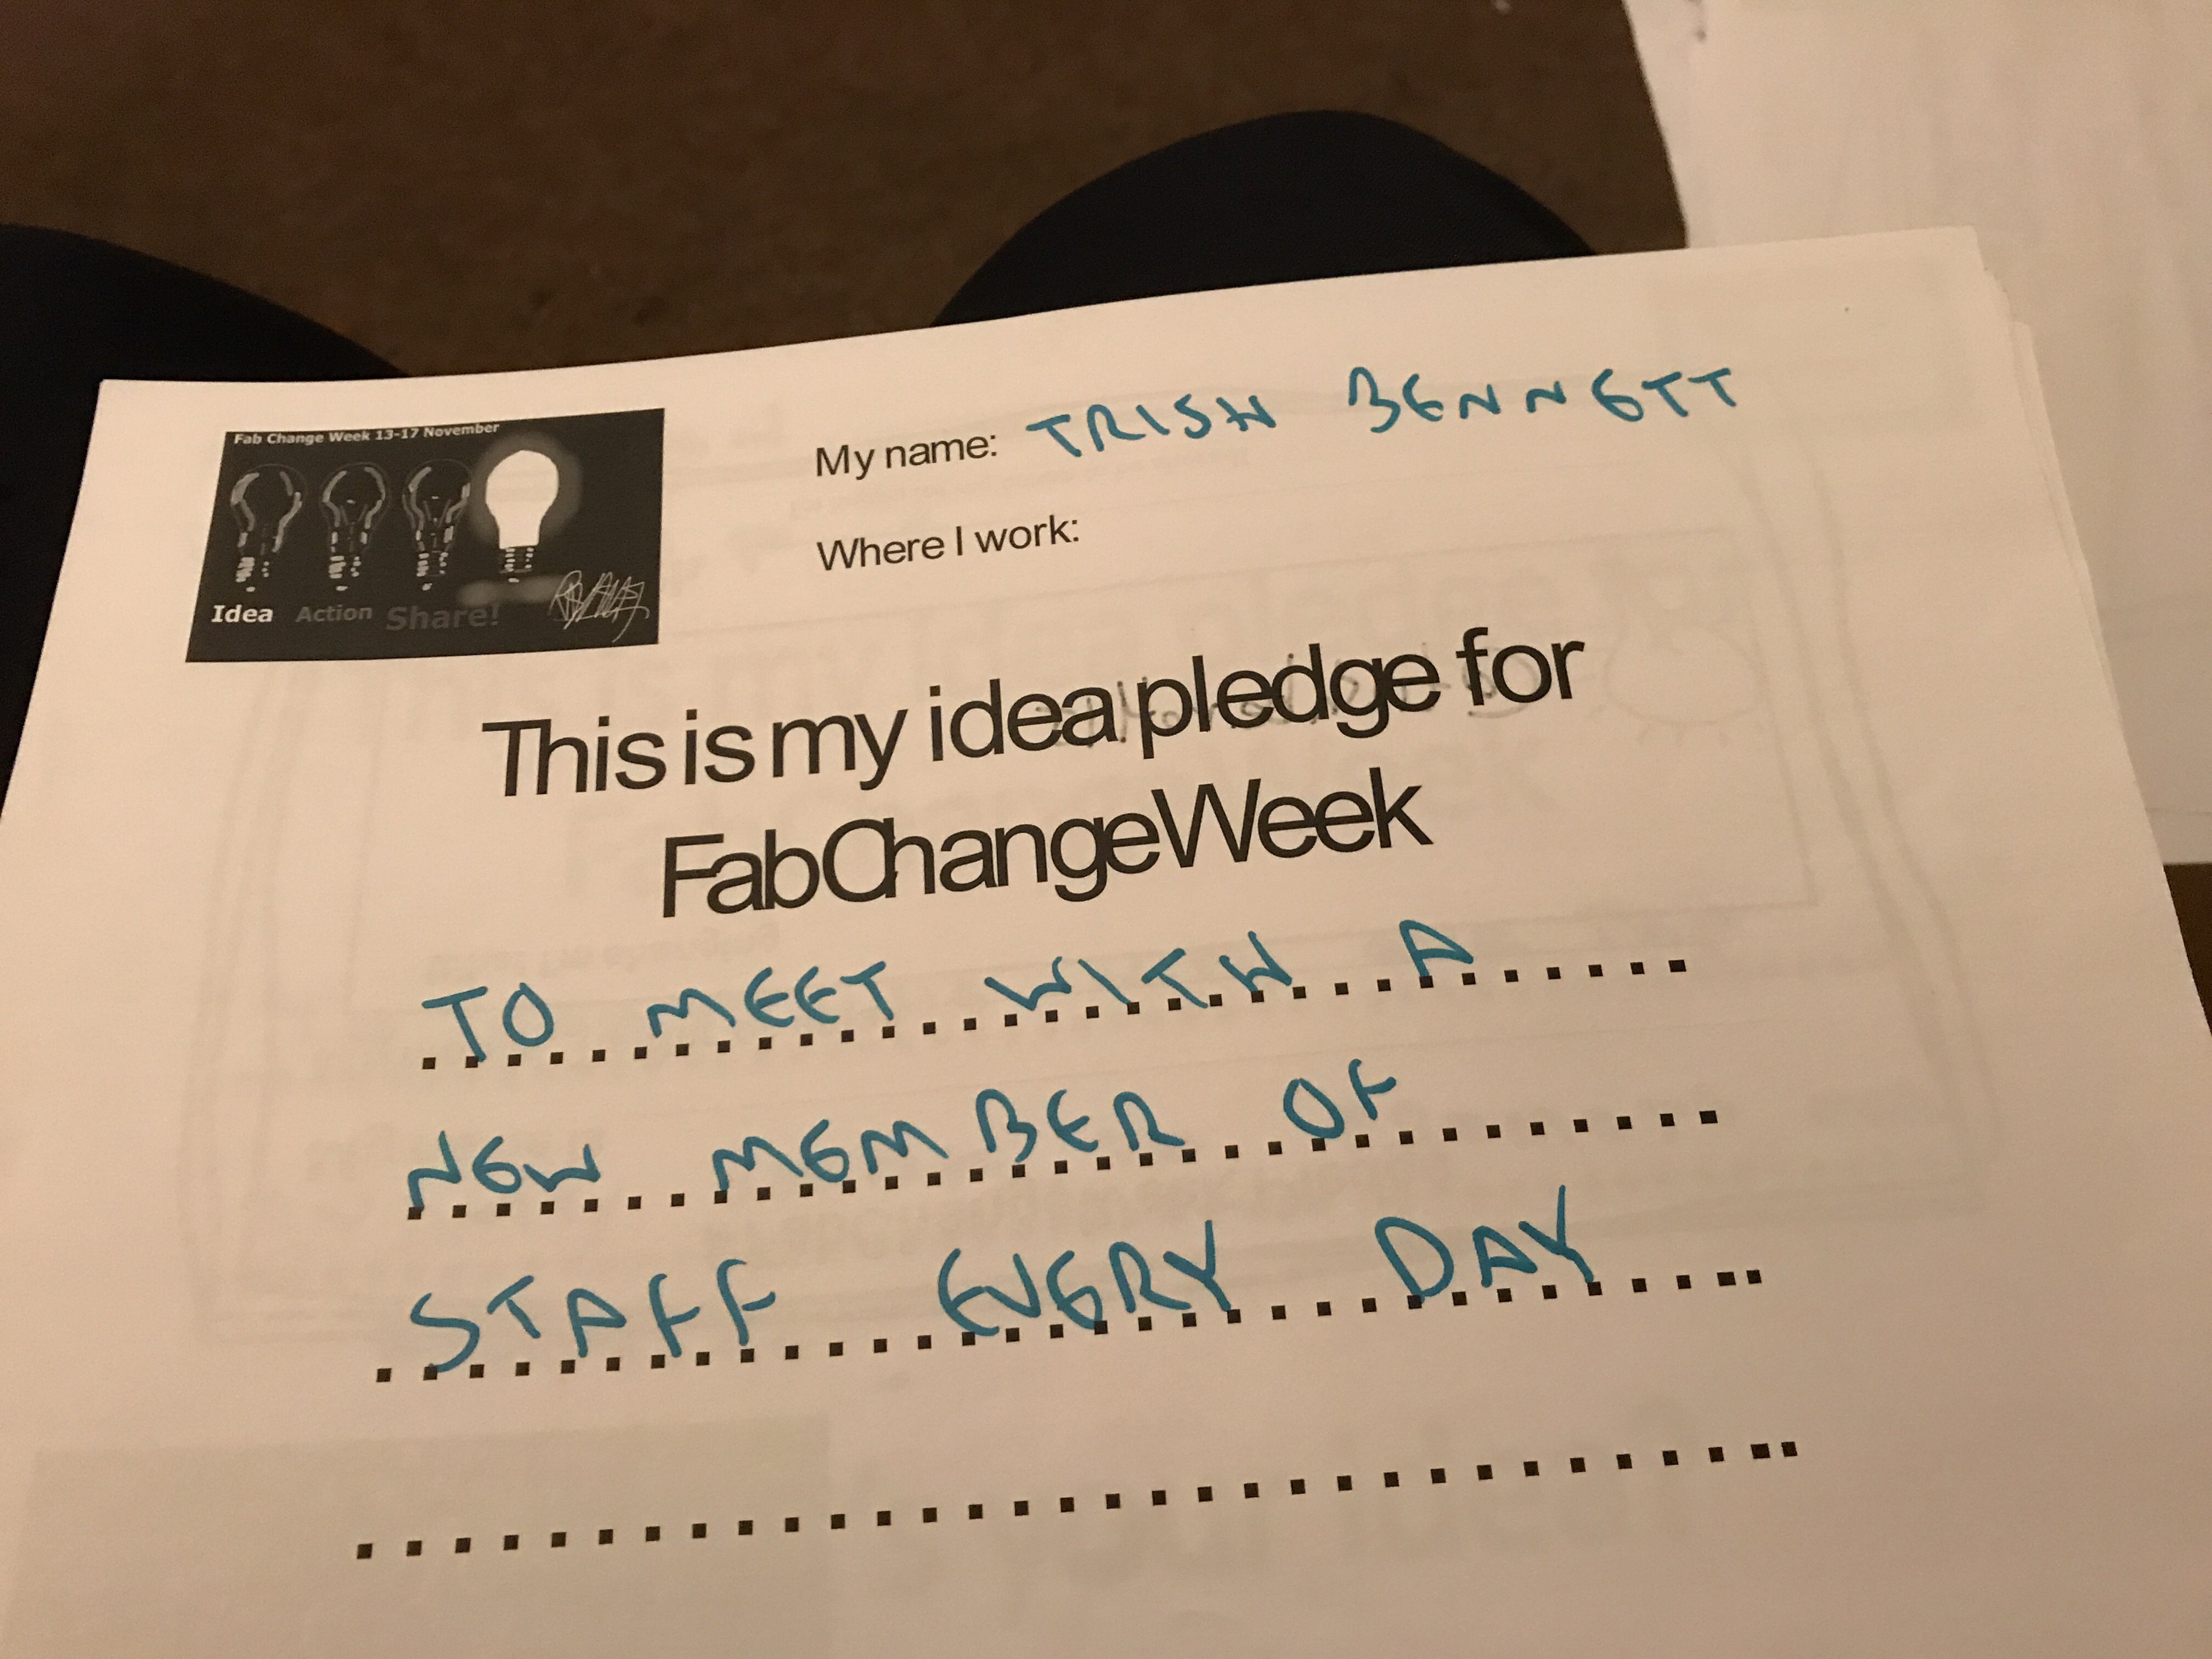 Fab Change Week 13-17 November
Idea Action Share!
My name: TRISH BENNETT
Where I work:
This is my idea pledge for
FabChangeWeek
TO MEET WITH A
NEW MEMBER OF
STAFF EVERY DAY